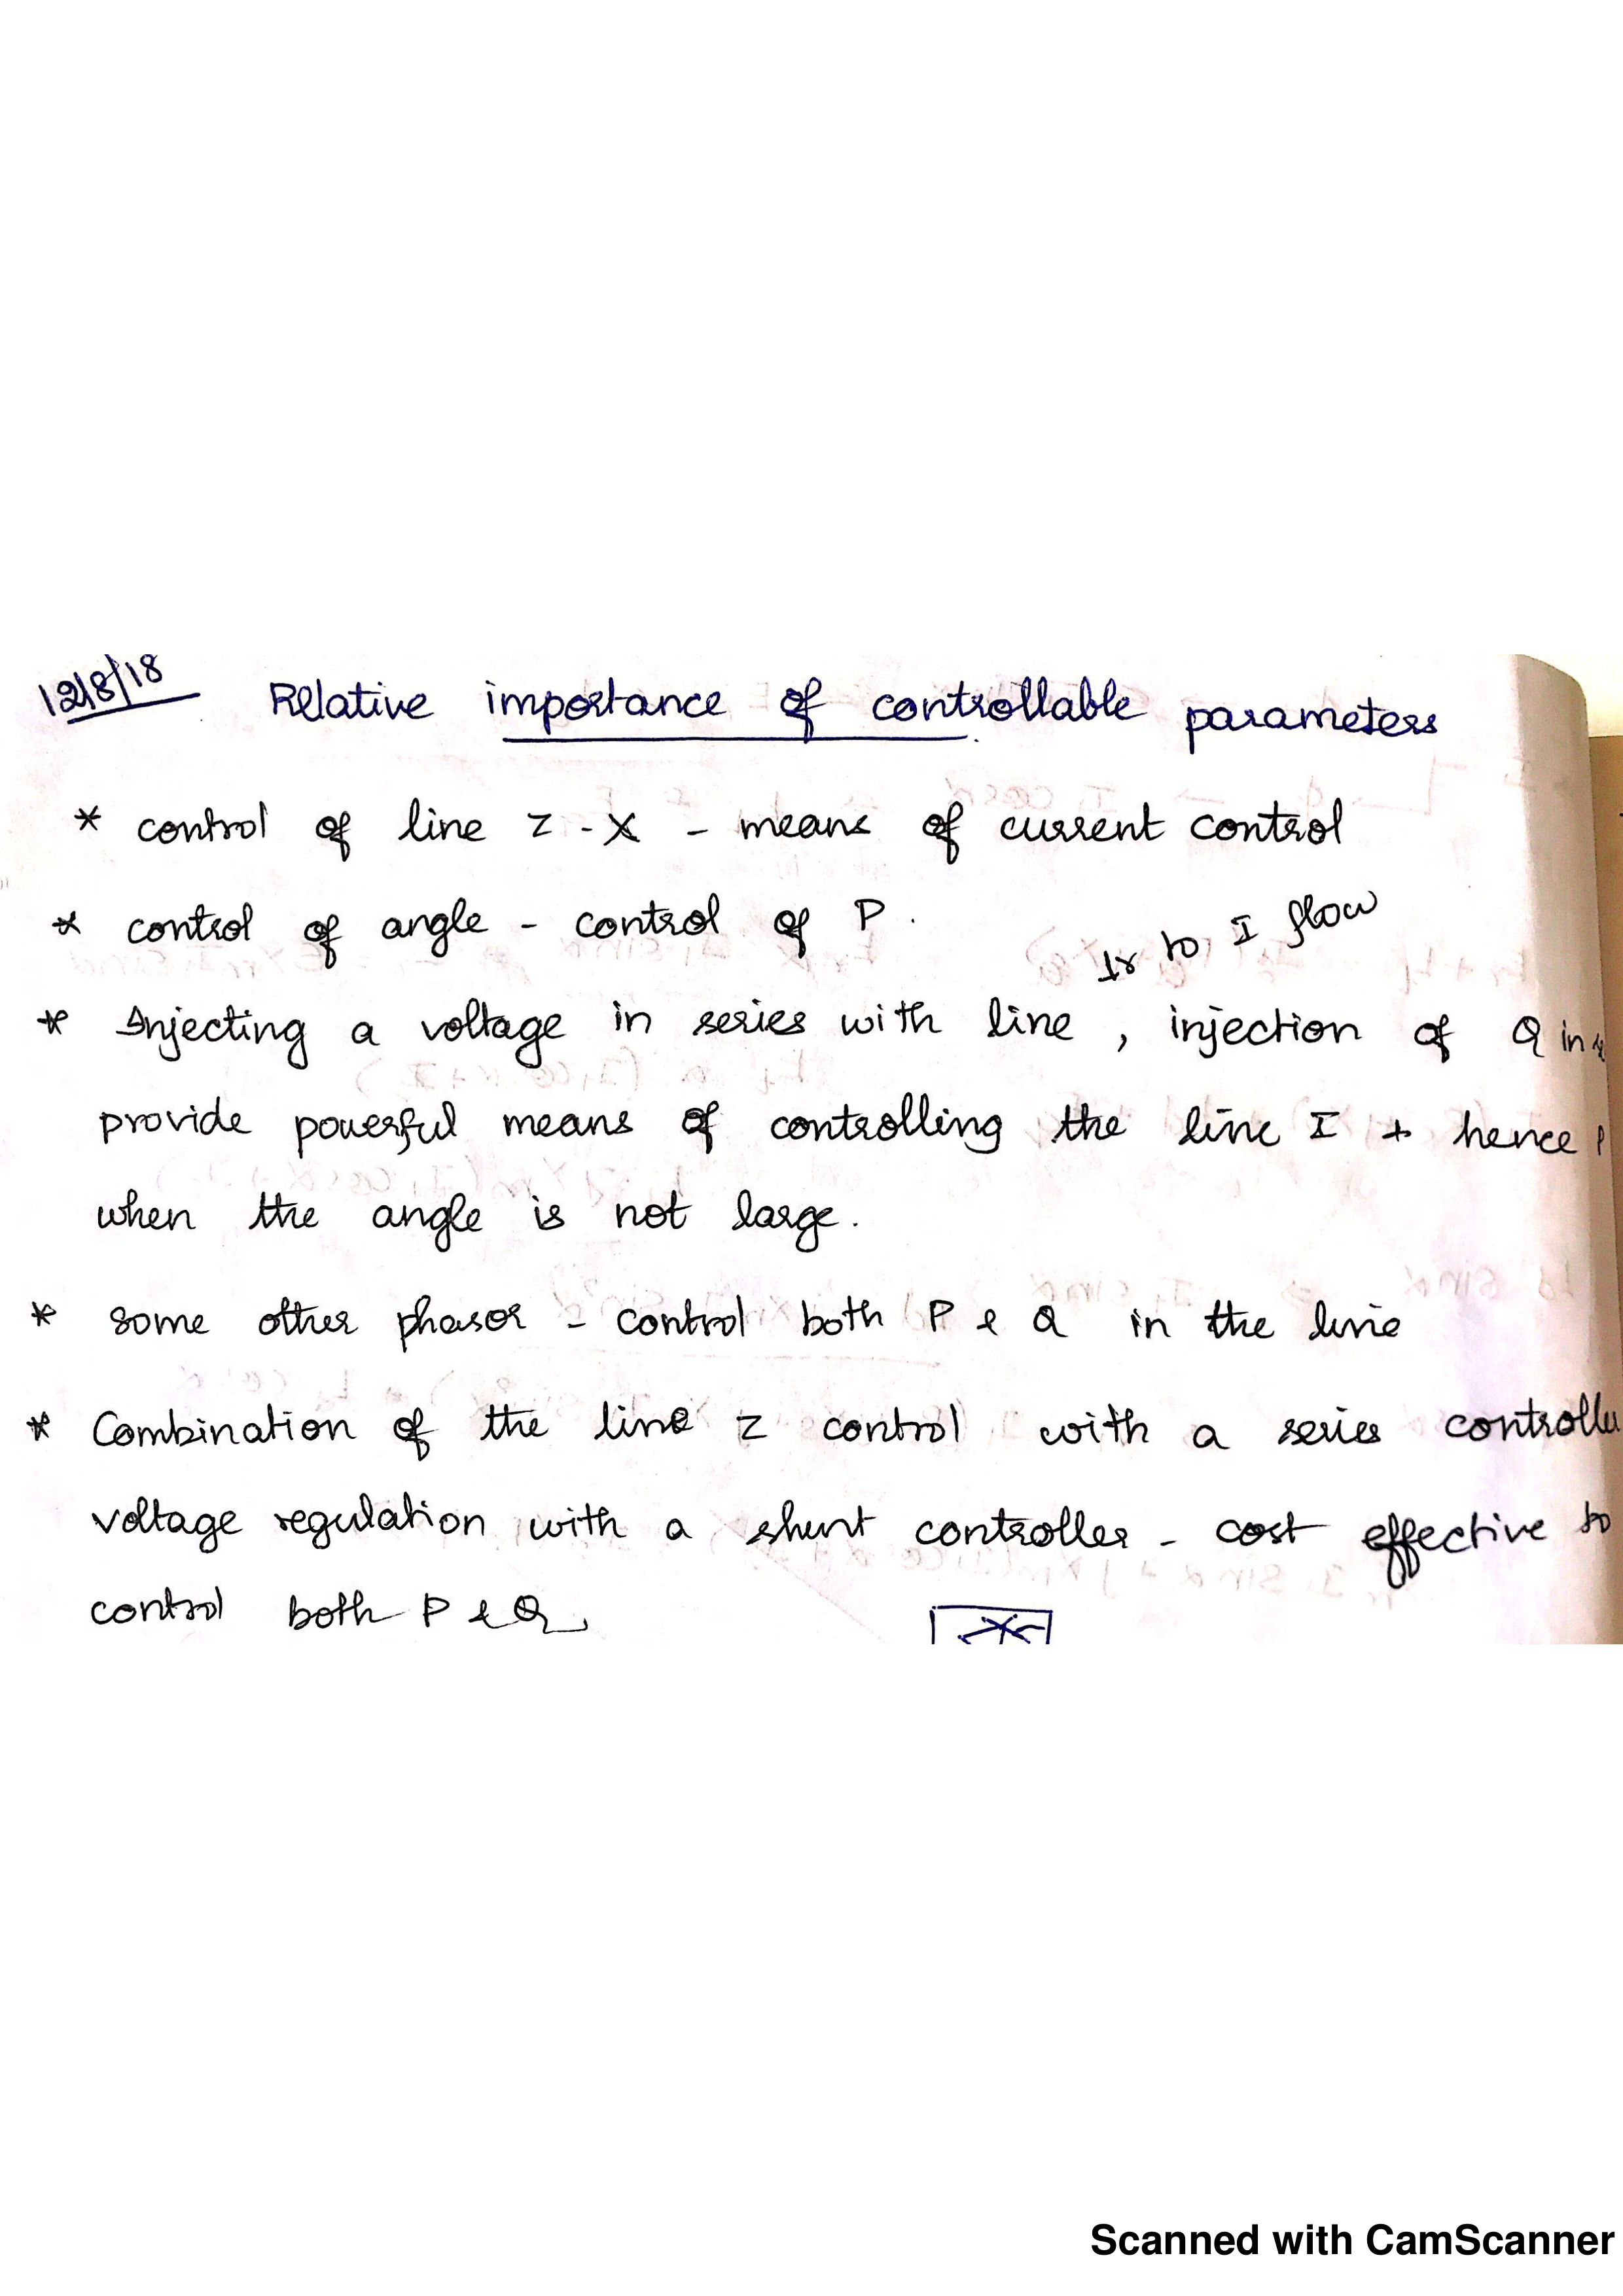 12/8/18 Relative importance of controllable parameters
* control of line Z - X - means of current control
* control of angle - control of P.
⊥r to I flow
* Injecting a voltage in series with line, injection of Q in
provide powerful means of controlling the line I + hence P
when the angle is not large.
* some other phasor - control both P & Q in the line
* Combination of the line Z control with a series controlle
voltage regulation with a shunt controller - cost effective to
control both P & Q
Scanned with CamScanner